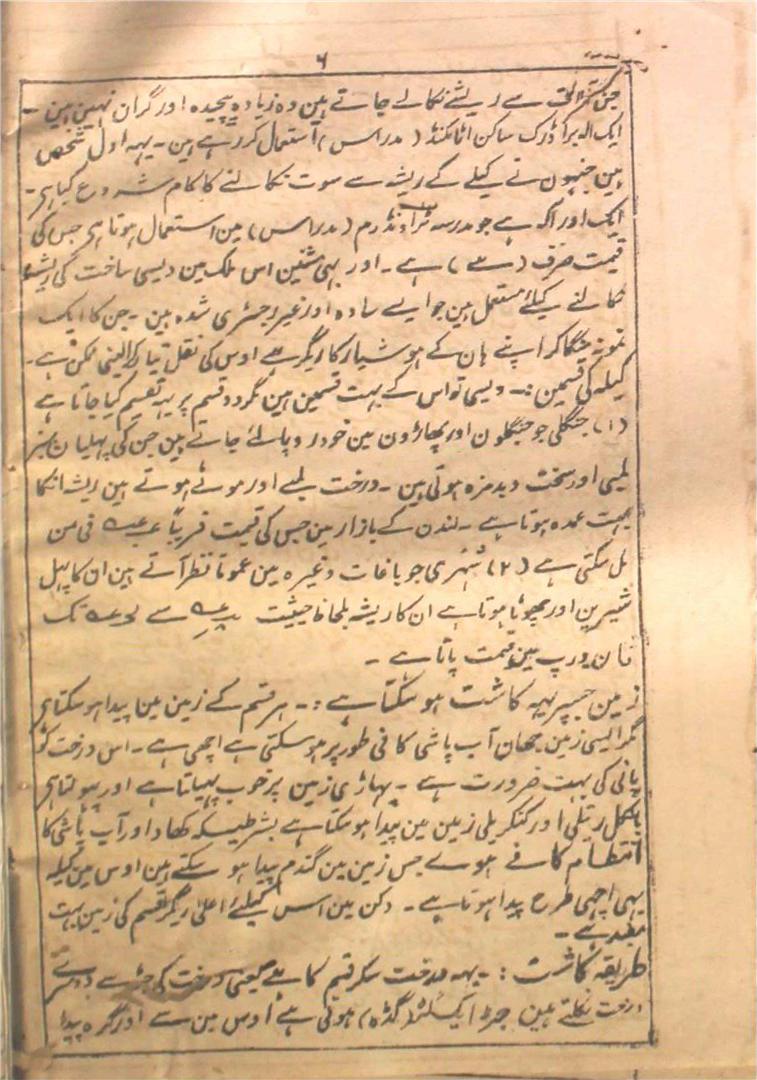 ۶
جن آلات سے ریشے نکالے جاتے ہین وہ زیادہ پیچیدہ اور گران نہین ہین ۔
ایک آلہ براڈرک ساکن اٹاکنڈ (مدراس) استعمال کر رہے ہین ۔ یہہ اول شخص
ہین جنہون نے کیلے کے ریشہ سے سوت نکالنے کا کام شروع کیا ہی ۔
ایک اور آلہ ہے جو مدرسہ ٹراونڈرم (مدراس) مین استعمال ہوتا ہی جس کی
قیمت صرف ہے ۔ اور بہی مشین اس ملک مین دیسی ساخت کی ریشہ
نکالنے کیلئے مستعمل ہین جو ایسے سادہ اور غیر رجسٹری شدہ ہین ۔ جن کا ایک
نمونہ منگا کر اپنے ہان کے ہوشیار کاریگر سے اوس کی نقل تیار کرالینا ممکن ہے ۔
کیلہ کی قسمین :۔ ویسی تو اس کے بہت قسمین ہین مگر دو قسم پر یہہ تقسیم کیا جاتا ہے
(۱) جنگلی جو جنگلون اور پہاڑون مین خودرو پائے جاتے ہین جن کی پہلیان سبز
لمبی اور سخت و بدمزہ ہوتی ہین ۔ درخت لمبے اور موٹے ہوتے ہین ریشہ انکا
بہت عمدہ ہوتا ہے ۔ لندن کے بازار مین جس کی قیمت قریباً فی من
مل سکتی ہے (۲) شہری جو باغات وغیرہ مین عموماً نظر آتے ہین ان کا پہل
شیرین اور چھوٹا ہوتا ہے ان کا ریشہ بلحاظ حیثیت سے تک
فی ٹن یورپ مین قیمت پاتا ہے ۔
زمین جسپر یہہ کاشت ہو سکتا ہے :۔ ہر قسم کے زمین مین پیدا ہو سکتا ہی
مگر ایسی زمین جہان آب پاشی کافی طور پر ہو سکتی ہے اچھی ہے ۔ اس درخت کو
پانی کی بہت ضرورت ہے ۔ پہاڑی زمین پر خوب پہیلتا ہے اور پہولتا ہی
بالکل ریتلی اور کنکریلی زمین مین پیدا ہو سکتا ہے بشرطیکہ کھاد اور آب پاشی کا
انتظام کافے ہووے جس زمین مین گندم پیدا ہو سکتے ہین اوس مین کیلہ
بہی اچھی طرح پیدا ہوتا ہے ۔ دکن مین اس کیلئے اعلیٰ ریگر قسم کی زمین بہت
مفید ہے ۔
طریقہ کاشت :۔ یہہ درخت سکر قسم کا ہے یعنی درخت کی جڑ سے دوسرے
درخت نکلتے ہین جڑ ایک گڈہ ہوتی ہے اوس مین سے اور گرہ پیدا